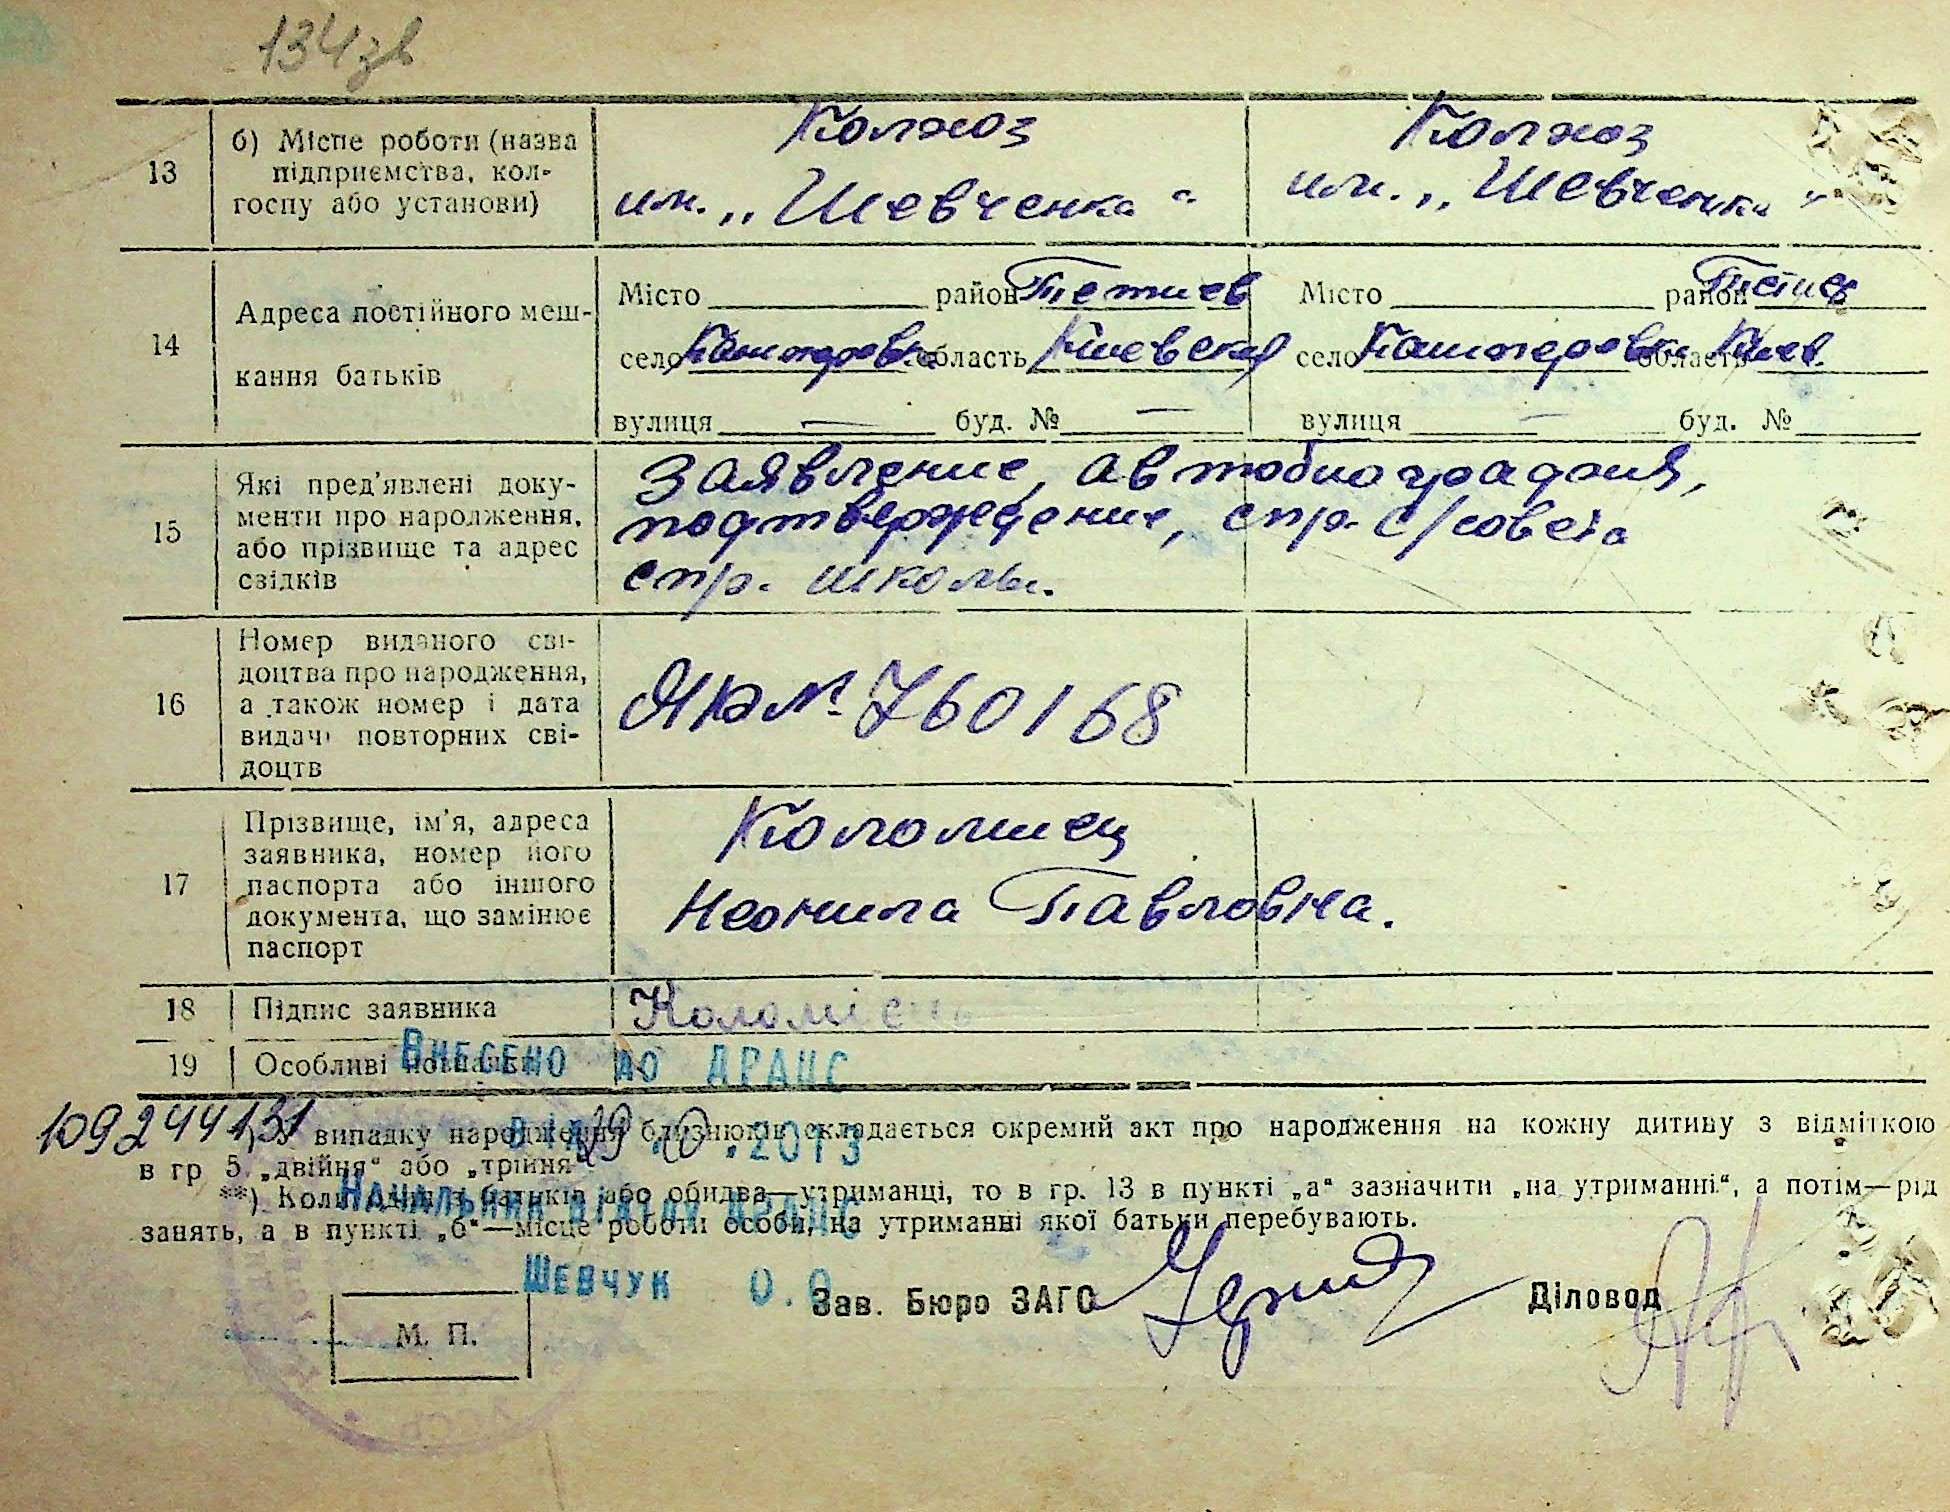 134зв
13
б) Місце роботи (назва
підприємства, кол-
госпу або установи)
Колхоз
им. „Шевченка“
Колхоз
им. „Шевченка“
14
Адреса постійного меш-
кання батьків
Місто район Тетиев
село Каштеровка область Киевская
вулиця — буд. № —
Місто район Тетиев
село Каштеровка область Киев.
вулиця — буд. №
15
Які пред'явлені доку-
менти про народження,
або прізвище та адрес
свідків
Заявление, автобиография,
подтверждение, спр. с/совета
спр. школы.
16
Номер виданого сві-
доцтва про народження,
а також номер і дата
видачі повторних сві-
доцтв
ЯЮ № 760168
17
Прізвище, ім'я, адреса
заявника, номер його
паспорта або іншого
документа, що замінює
паспорт
Коломиец
Неонила Павловна.
18
Підпис заявника
Коломієць
19
Особливі
Внесено до ДРАЦС
109244131
випадку народження близнюків складається окремий акт про народження на кожну дитину з відміткою
від 29.10.2013
в гр 5 „двійня“ або „трійня“
**) Коли один з батьків або обидва—утриманці, то в гр. 13 в пункті „а“ зазначити „на утриманні“, а потім—рід
Начальник відділу ДРАЦС
занять, а в пункті „б“—місце роботи особи, на утриманні якої батьки перебувають.
Шевчук О.О
Зав. Бюро ЗАГС
Діловод
М. П.